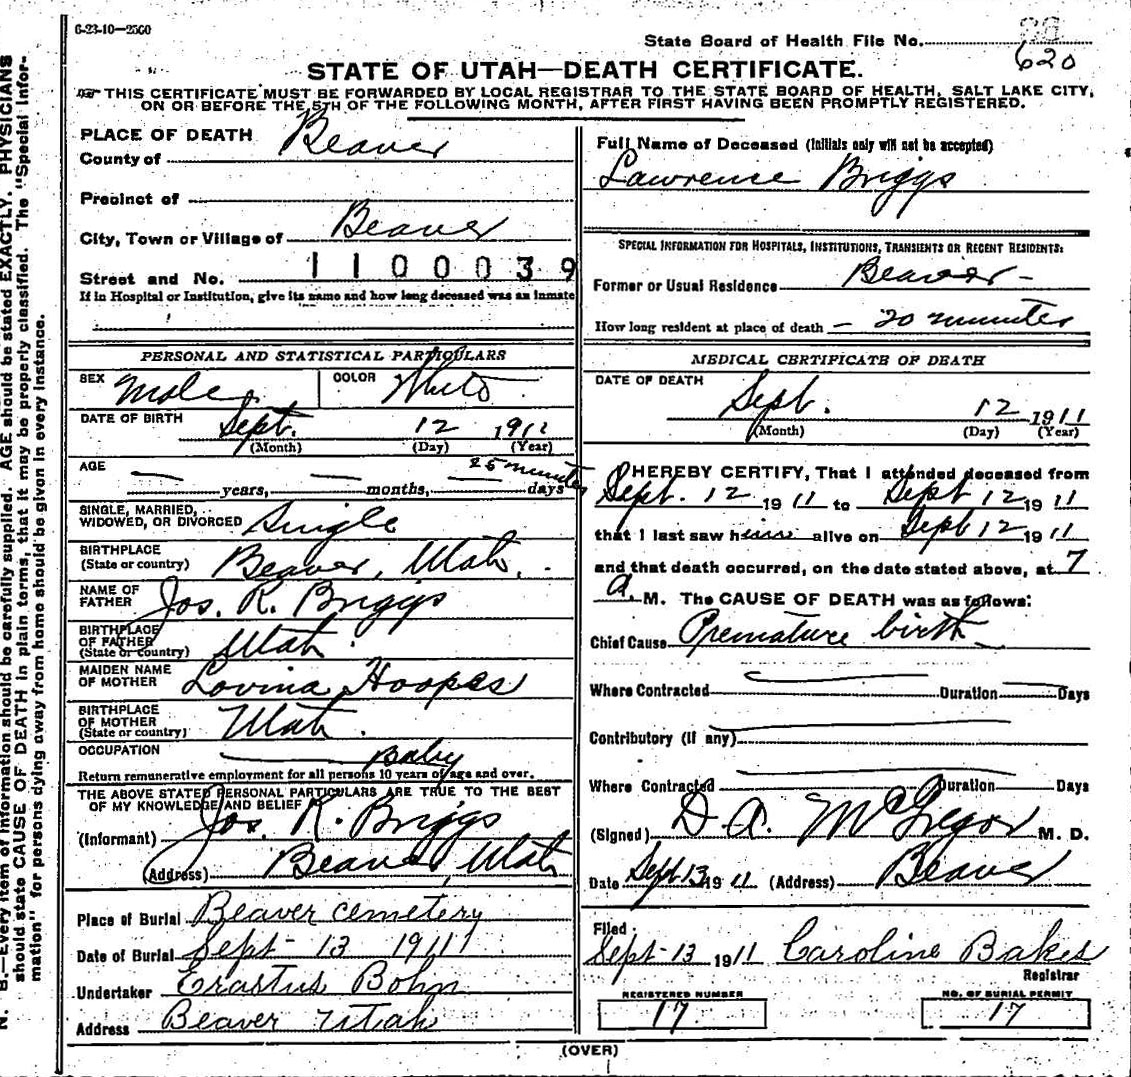 6-23-10—2500
State Board of Health File No.
620
STATE OF UTAH—DEATH CERTIFICATE.
THIS CERTIFICATE MUST BE FORWARDED BY LOCAL REGISTRAR TO THE STATE BOARD OF HEALTH, SALT LAKE CITY,
ON OR BEFORE THE 5TH OF THE FOLLOWING MONTH, AFTER FIRST HAVING BEEN PROMPTLY REGISTERED.
PLACE OF DEATH
County of Beaver
Precinct of
City, Town or Village of Beaver
Street and No. 1 1 0 0 0 3 9
If in Hospital or Institution, give its name and how long deceased was an inmate
PERSONAL AND STATISTICAL PARTICULARS
SEX Male COLOR White
DATE OF BIRTH Sept. 12 1911
(Month) (Day) (Year)
AGE 25 minutes
years, months, days
SINGLE, MARRIED,
WIDOWED, OR DIVORCED Single
BIRTHPLACE
(State or country) Beaver, Utah.
NAME OF
FATHER Jos. R. Briggs
BIRTHPLACE
OF FATHER
(State or country) Utah.
MAIDEN NAME
OF MOTHER Lovina Hoopes
BIRTHPLACE
OF MOTHER
(State or country) Utah.
OCCUPATION Baby
Return remunerative employment for all persons 10 years of age and over.
THE ABOVE STATED PERSONAL PARTICULARS ARE TRUE TO THE BEST
OF MY KNOWLEDGE AND BELIEF
(Informant) Jos. R. Briggs
(Address) Beaver, Utah
Place of Burial Beaver cemetery
Date of Burial Sept - 13 1911
Undertaker Erastus Bohn
Address Beaver Utah
Full Name of Deceased (Initials only will not be accepted)
Lawrence Briggs
SPECIAL INFORMATION FOR HOSPITALS, INSTITUTIONS, TRANSIENTS OR RECENT RESIDENTS:
Former or Usual Residence Beaver -
How long resident at place of death - 20 minutes
MEDICAL CERTIFICATE OF DEATH
DATE OF DEATH
Sept. 12 1911
(Month) (Day) (Year)
I HEREBY CERTIFY, That I attended deceased from
Sept. 12 1911 to Sept 12 1911
that I last saw him alive on Sept 12 1911
and that death occurred, on the date stated above, at 7
A. M. The CAUSE OF DEATH was as follows:
Chief Cause Premature birth
Where Contracted Duration Days
Contributory (if any)
Where Contracted Duration Days
(Signed) D. A. McGregor M. D.
Date Sept 13 1911 (Address) Beaver
Filed
Sept - 13 1911 Caroline Baker
Registrar
REGISTERED NUMBER
17
NO. OF BURIAL PERMIT
17
(OVER)
N. B.—Every item of information should be carefully supplied. AGE should be stated EXACTLY. PHYSICIANS
should state CAUSE OF DEATH in plain terms, that it may be properly classified. The "Special Infor-
mation" for persons dying away from home should be given in every instance.